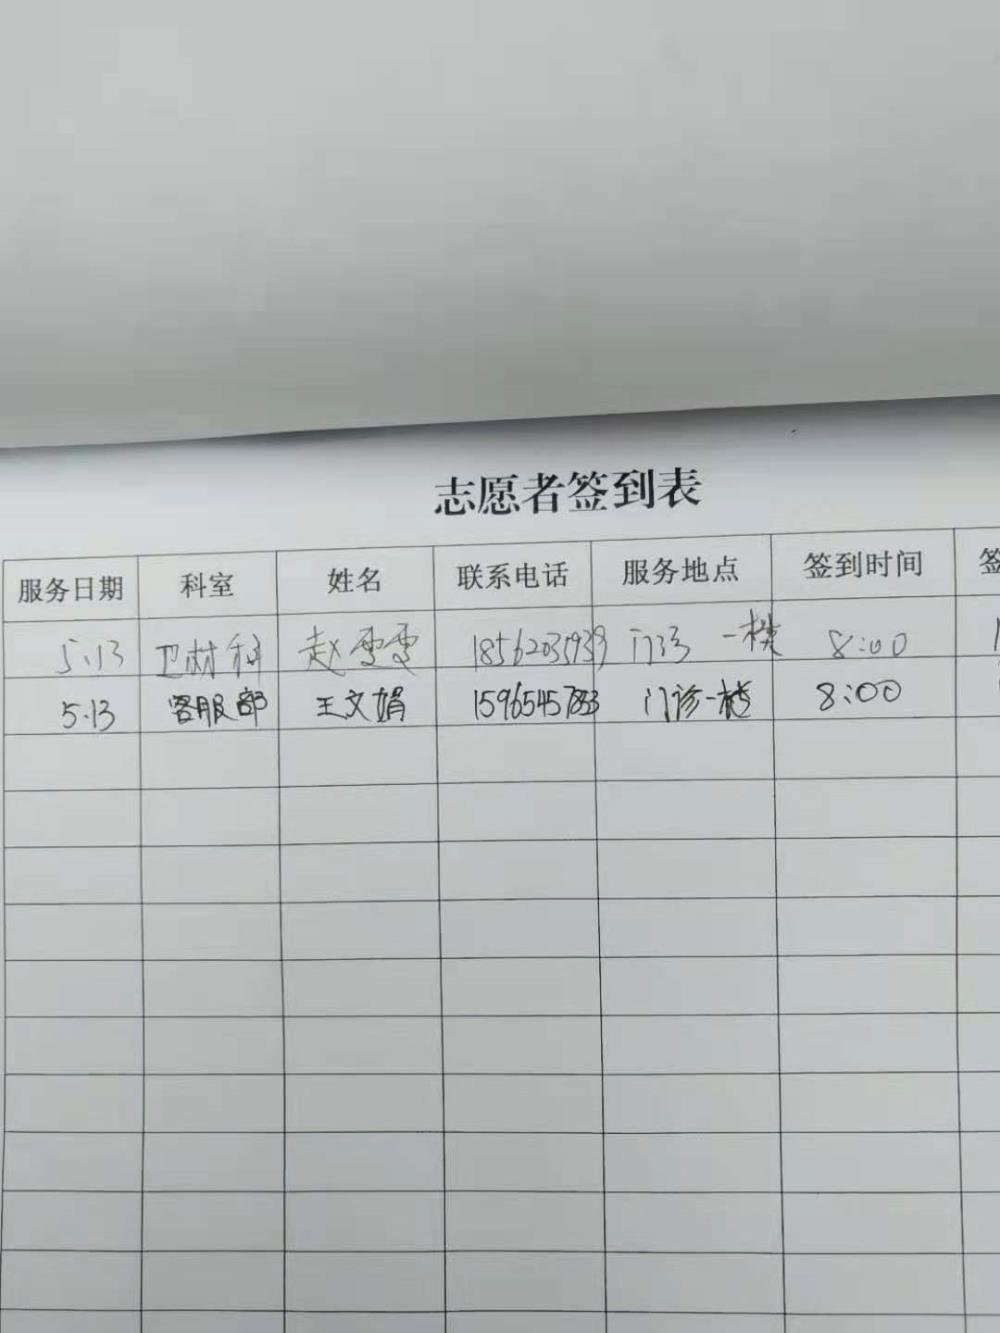 志愿者签到表
服务日期 科室 姓名 联系电话 服务地点 签到时间 签
5.13 卫材科 赵雪雪 门诊 一楼 8:00
5.13 客服部 王文娟 门诊一楼 8:00